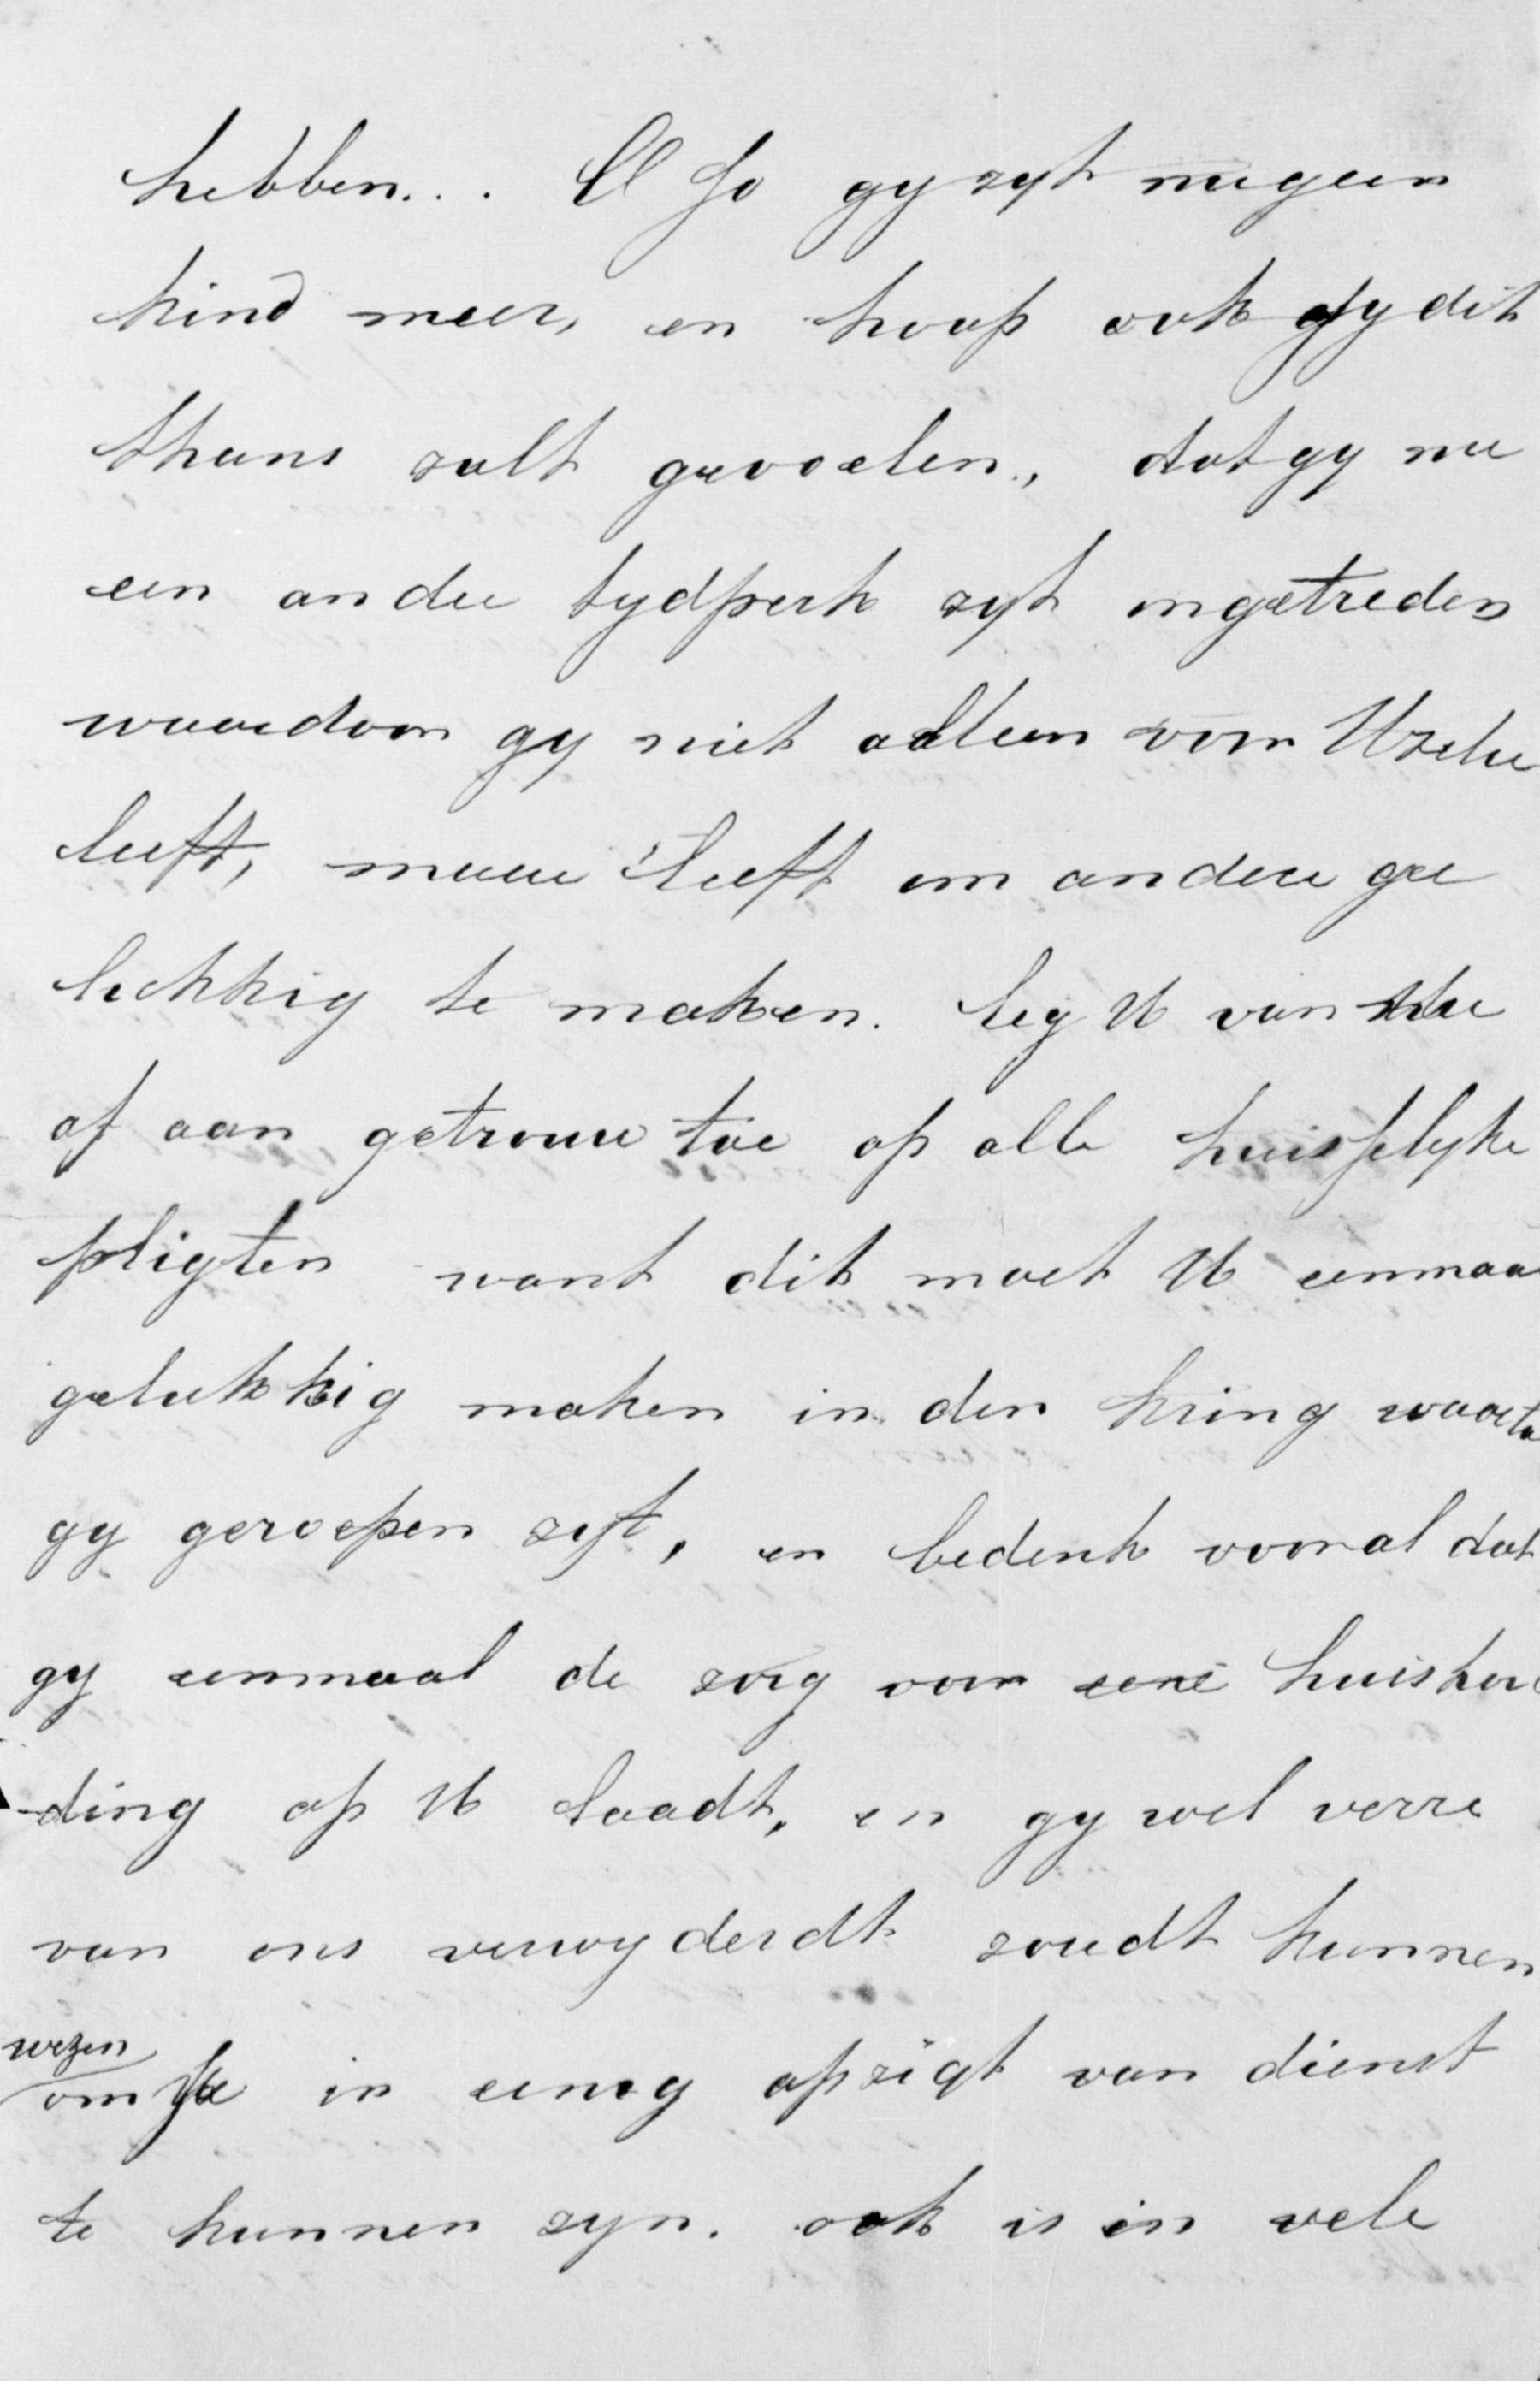 hebben... O Jo gy zyt nu geen
kind meer, en hoop ook gy dit
thans zult gevoelen, dat gy nu
een ander tydperk zyt ingetreden
waardoor gy niet alleen voor Uzelve
leeft, maar leeft om andere ge
lukkig te maken. leg U van nu
af aan getrouw toe op alle huisselyke
pligten want dit moet U eenmaa
gelukkig maken in den kring waarto
gy geroepen zyt, en bedenk vooral dat
gy eenmaal de zorg voor eene huishou
-ding op U laadt, en gy wel verre
van ons verwyderdt zoudt kunnen
wezen
om U in eenig opzigt van dienst
te kunnen zyn. ook is in vele